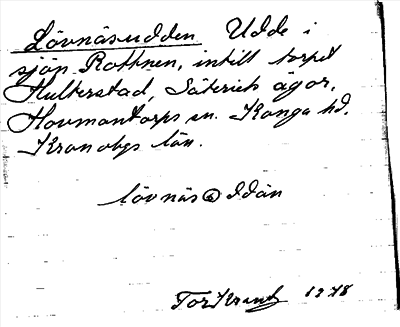 Lövnäsudden Udde i
sjön Rottnen, intill torpet
Hulterstad, Säterichs ägor,
Hovmantorps sn. Konga hd.
Kronobgs län.
lövnäs
Tor 1978